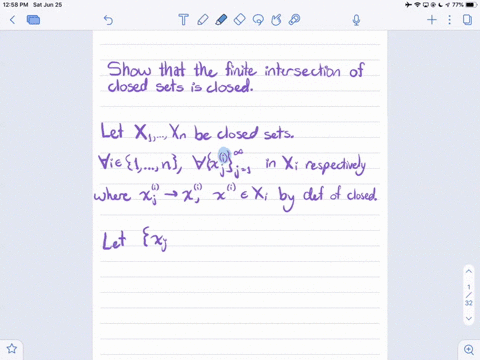 12:58 PM Sat Jun 25
77%
Show that the finite intersection of
closed sets is closed.
Let X₁,..., Xₙ be closed sets.
∀i∈{1,...,n}, ∀{xⱼ⁽ⁱ⁾}ⱼ₌₁^∞ in Xᵢ respectively
where xⱼ⁽ⁱ⁾ → x⁽ⁱ⁾, x⁽ⁱ⁾ ∈ Xᵢ by def of closed.
Let {xⱼ
1
/
32